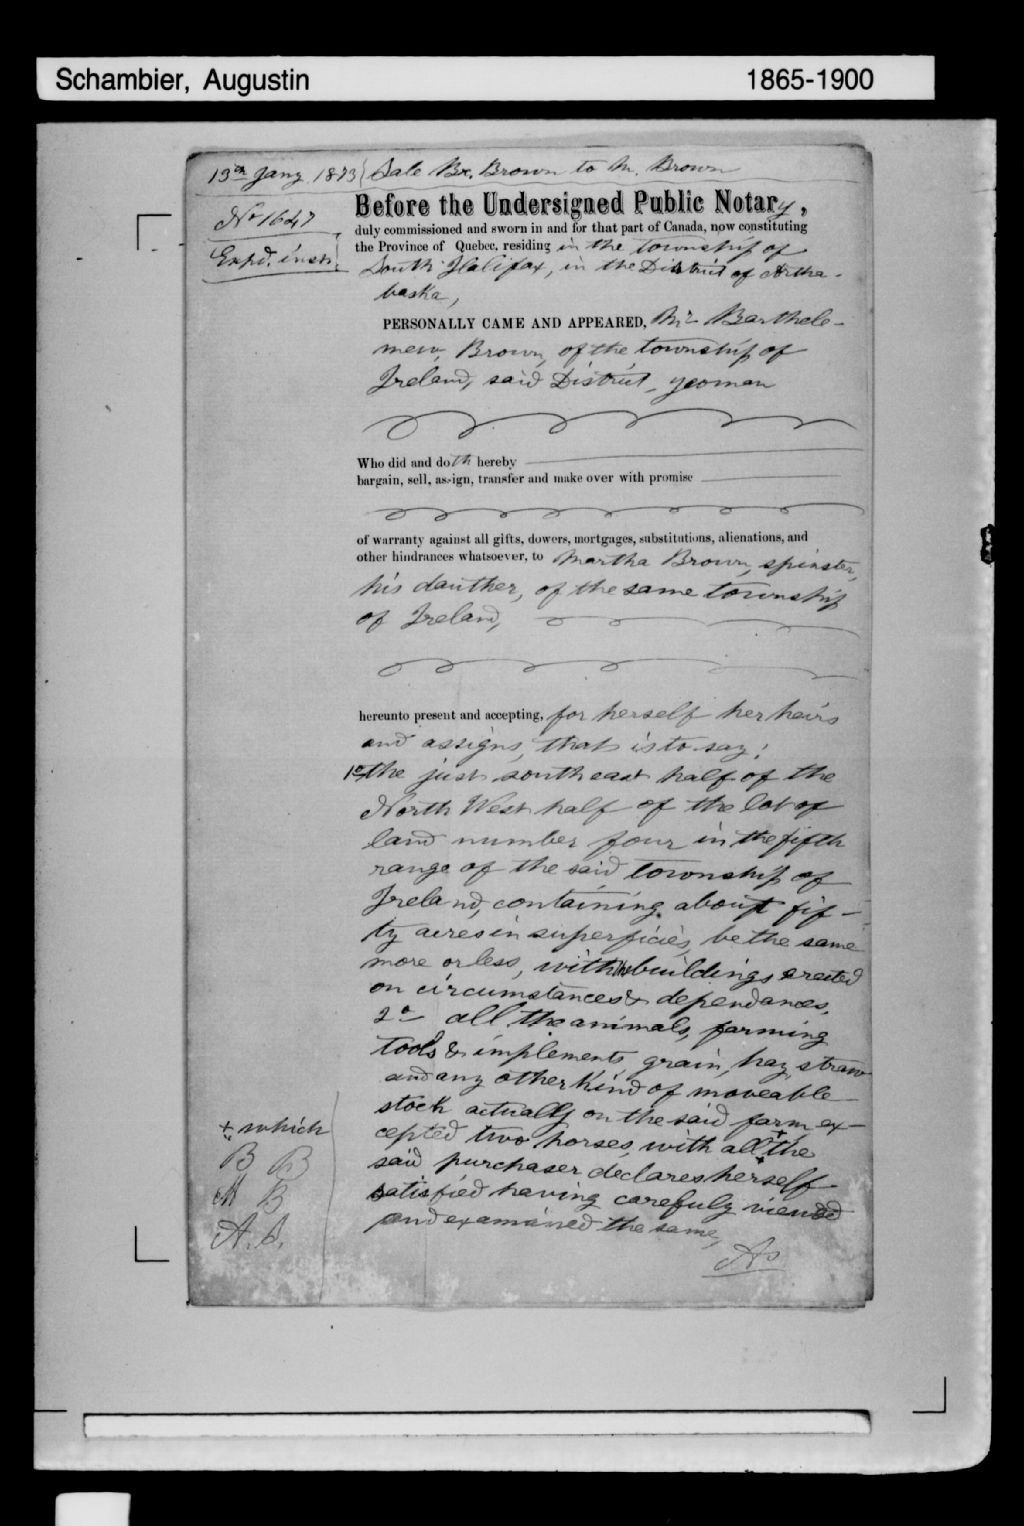 Schambier, Augustin 1865-1900
13th Jany 1873 Sale Br. Brown to M. Brown
No 1647
Expd. inst.
Before the Undersigned Public Notary,
duly commissioned and sworn in and for that part of Canada, now constituting
the Province of Quebec, residing in the township of
South Halifax, in the District of Artha-
baska,
PERSONALLY CAME AND APPEARED, Mr Barthele-
mew, Brown, of the township of
Ireland, said District, yeoman
Who did and doth hereby
bargain, sell, assign, transfer and make over with promise
of warranty against all gifts, dowers, mortgages, substitutions, alienations, and
other hindrances whatsoever, to Martha Brown, spinster,
his dauther, of the same township
of Ireland,
hereunto present and accepting, for herself her heirs
and assigns, that is to say:
1o the just south east half of the
North West half of the lot of
land number four in the fifth
range of the said township of
Ireland, containing about fif-
ty acres in superficies, be the same
more or less, with the buildings erected
on circumstances & dependances,
2o all the animals, farming
tools & implements, grain, hay, straw
and any other kind of moveable
stock actually on the said farm ex-
cepted two horses, with all + the
said purchaser declares herself
satisfied having carefuly viewed
and examined the same,
+ which
B B
M B
A. S.
AS